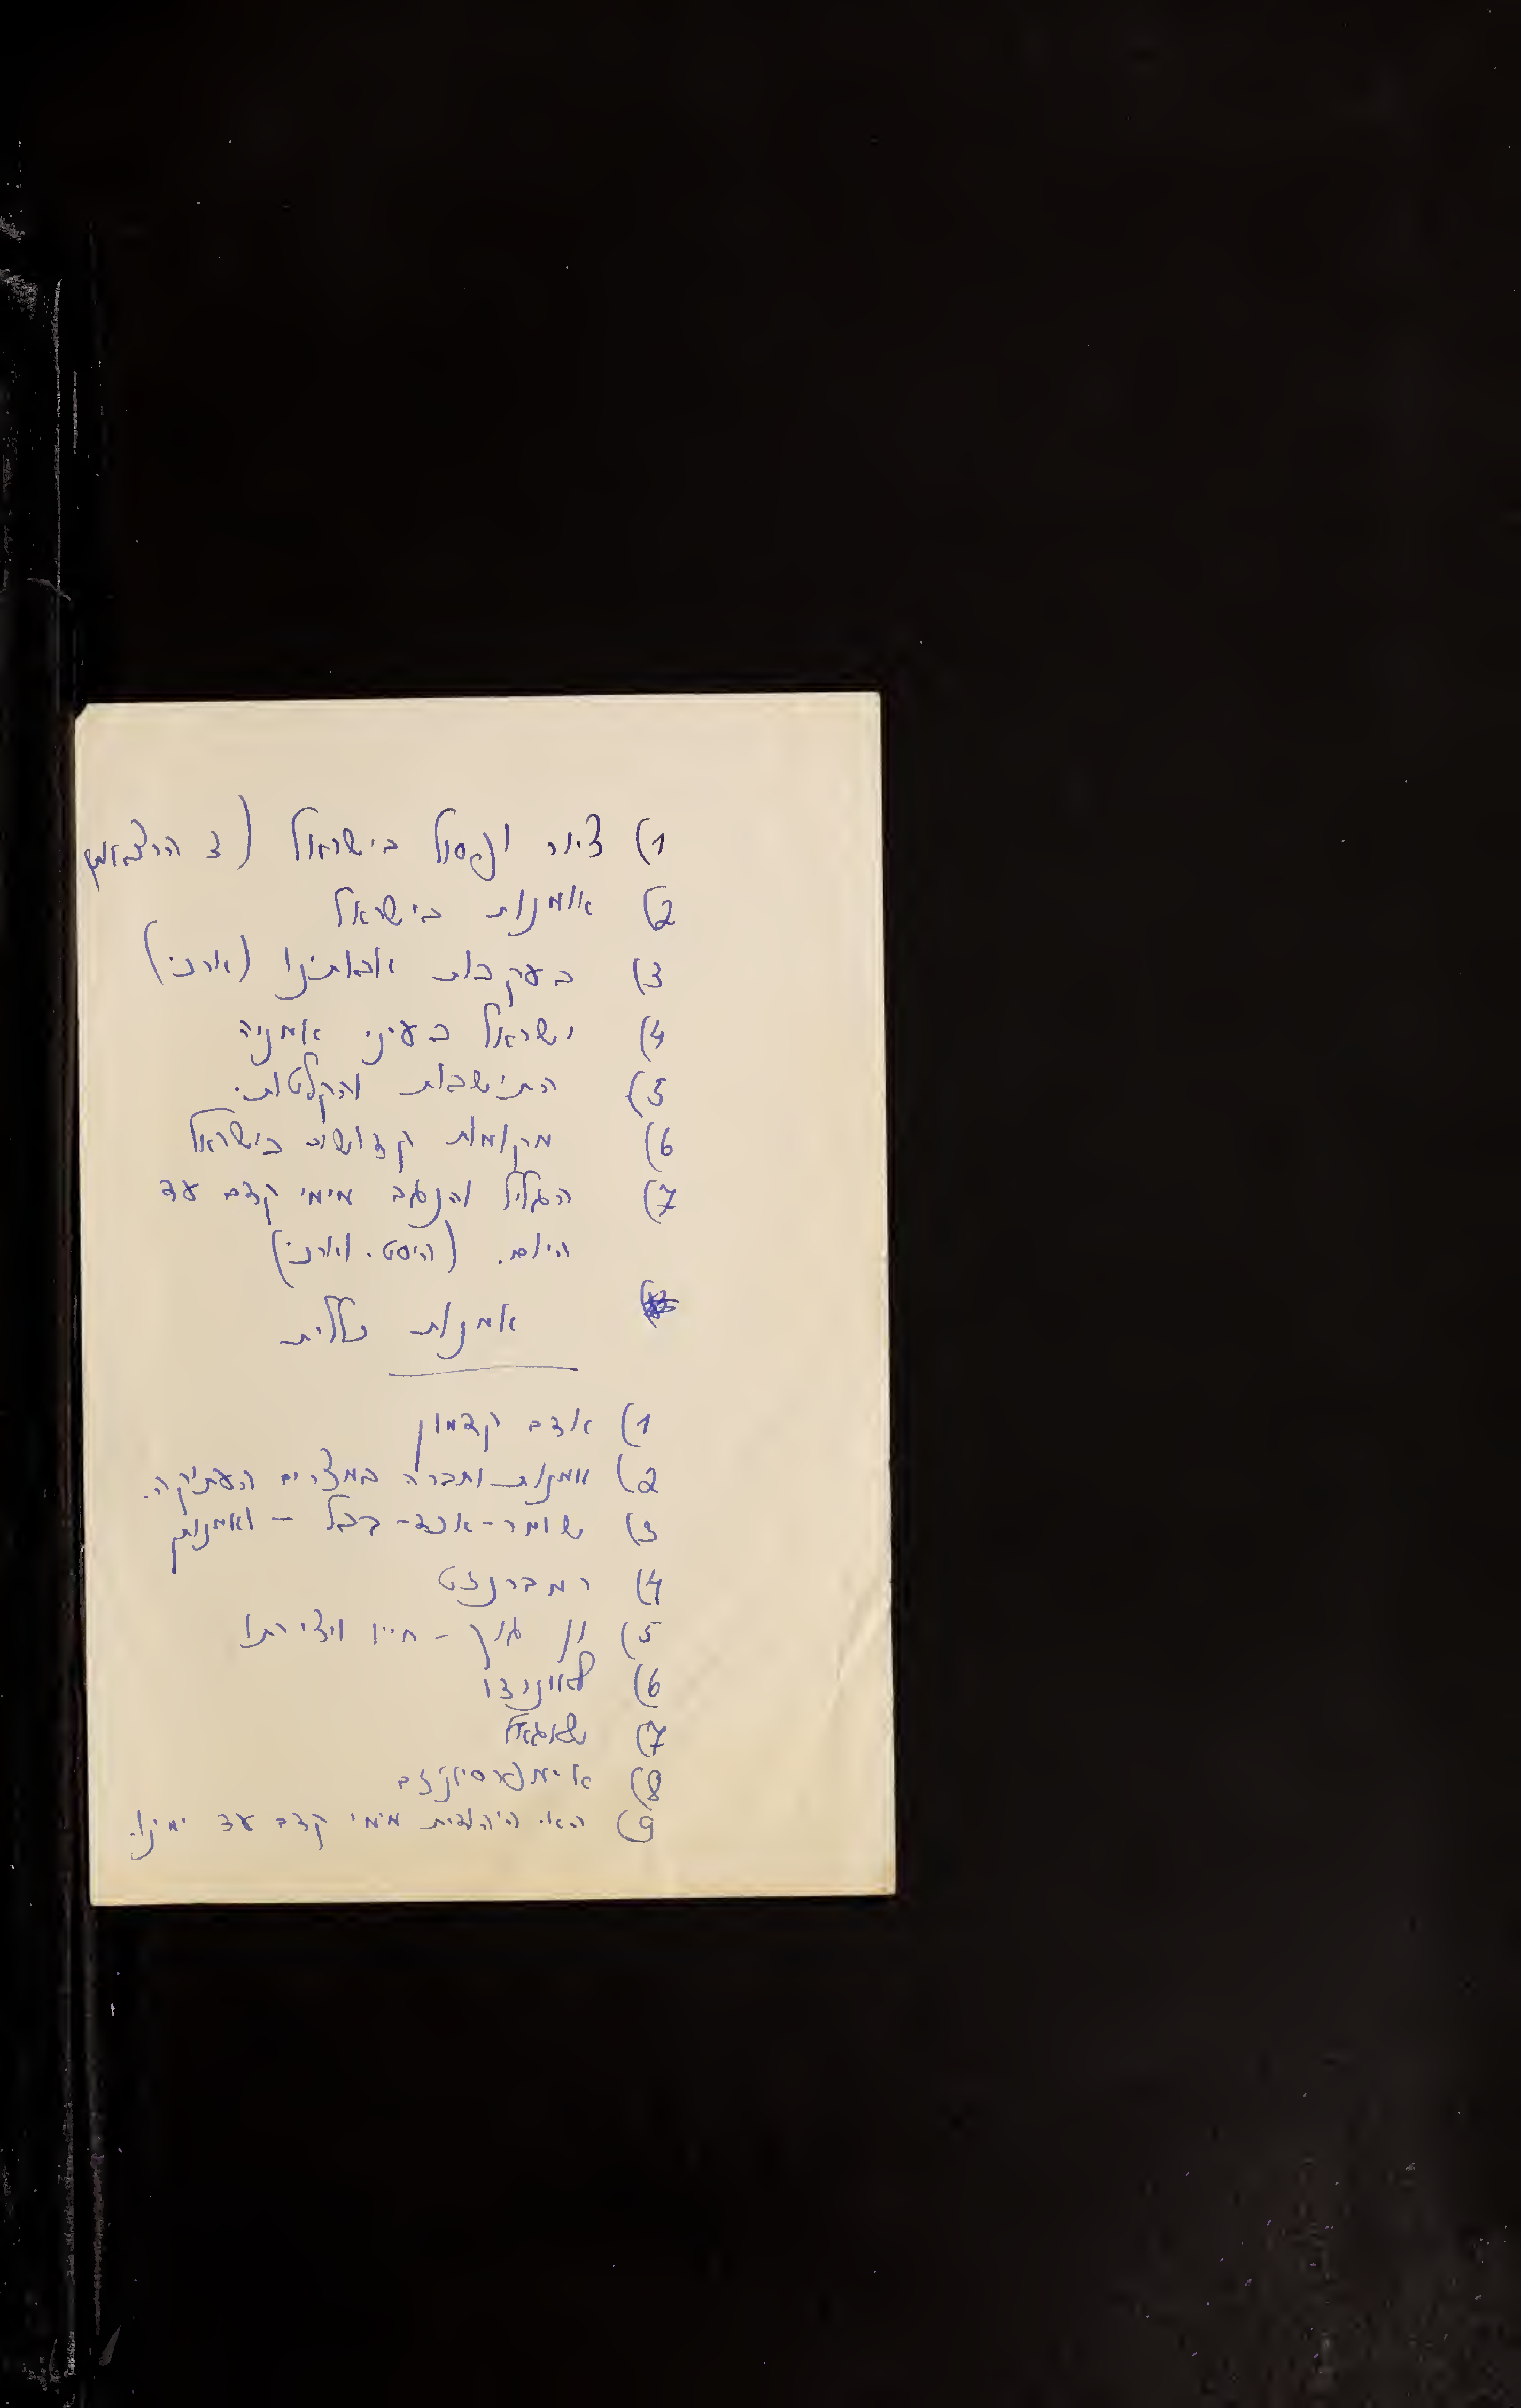 1) ציור ופסול בישראל (3 הרצאות)
2) אומנות בישראל
3) בעקבות אבותינו (ארכ׳)
4) ישראל בעיני אמניה
5) התישבות והקלטות.
6) מקומות קדושים בישראל
7) הגליל והנגב מימי קדם עד
היום. (היסט. וארכ׳)
אמנות כללית
1) אדם קדמון
2) אמנות וחברה במצרים העתיקה.
3) שומר-אכד-בבל - ואמנותן
4) רמברנדט
5) ון גוך - חייו ויצירתו
6) לאונרדו
7) שאגאל
8) אימפרסיוניזם
9) האו׳ היהודית מימי קדם עד ימינו.